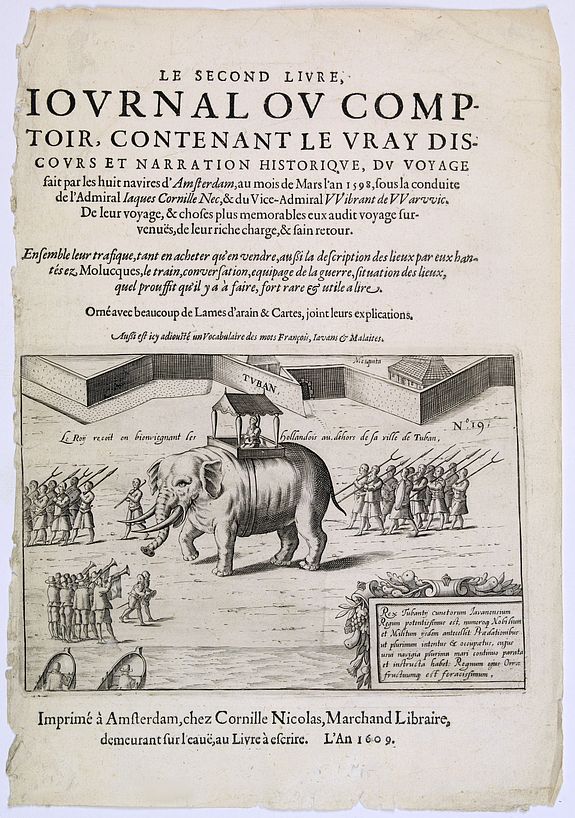 LE SECOND LIVRE,
IOVRNAL OV COMP-
TOIR, CONTENANT LE VRAY DIS-
COVRS ET NARRATION HISTORIQVE, DV VOYAGE
fait par les huit navires d'Amsterdam, au mois de Mars l'an 1598, sous la conduite
de l'Admiral Iaques Cornille Nec, & du Vice-Admiral VVibrant de VVarvvic.
De leur voyage, & choses plus memorables eux audit voyage sur-
venuës, de leur riche charge, & sain retour.
Ensemble leur trafique, tant en acheter qu'en vendre, aussi la description des lieux par eux han-
tés ez Molucques, le train, conversation, equipage de la guerre, situation des lieux,
quel prouffit qu'il y a à faire, fort rare & utile a lire.
Orné avec beaucoup de Lames d'arain & Cartes, joint leurs explications.
Aussi est icy adiousté un Vocabulaire des mots François, Iavans & Malaites.
Mesquita
TVBAN
No. 19
Le Roy recoit en bienvignant les Hollandois au. dehors de sa ville de Tuban,
Rex Tubanṇ cunctorum Iavanensium
Regum potentissimus est, numeroq Nobilium
et Militum ijsdem antecellit Prædationibus
ut plurimum intentus & occupatus, cujus
usui navigia plurima mari continuo parata
et instructa habet: Regnum ejus Orizæ
fructuumq est feracissimum,
Imprimé à Amsterdam, chez Cornille Nicolas, Marchand Libraire,
demeurant sur l'eauë, au Livre à escrire. L'An 1609.